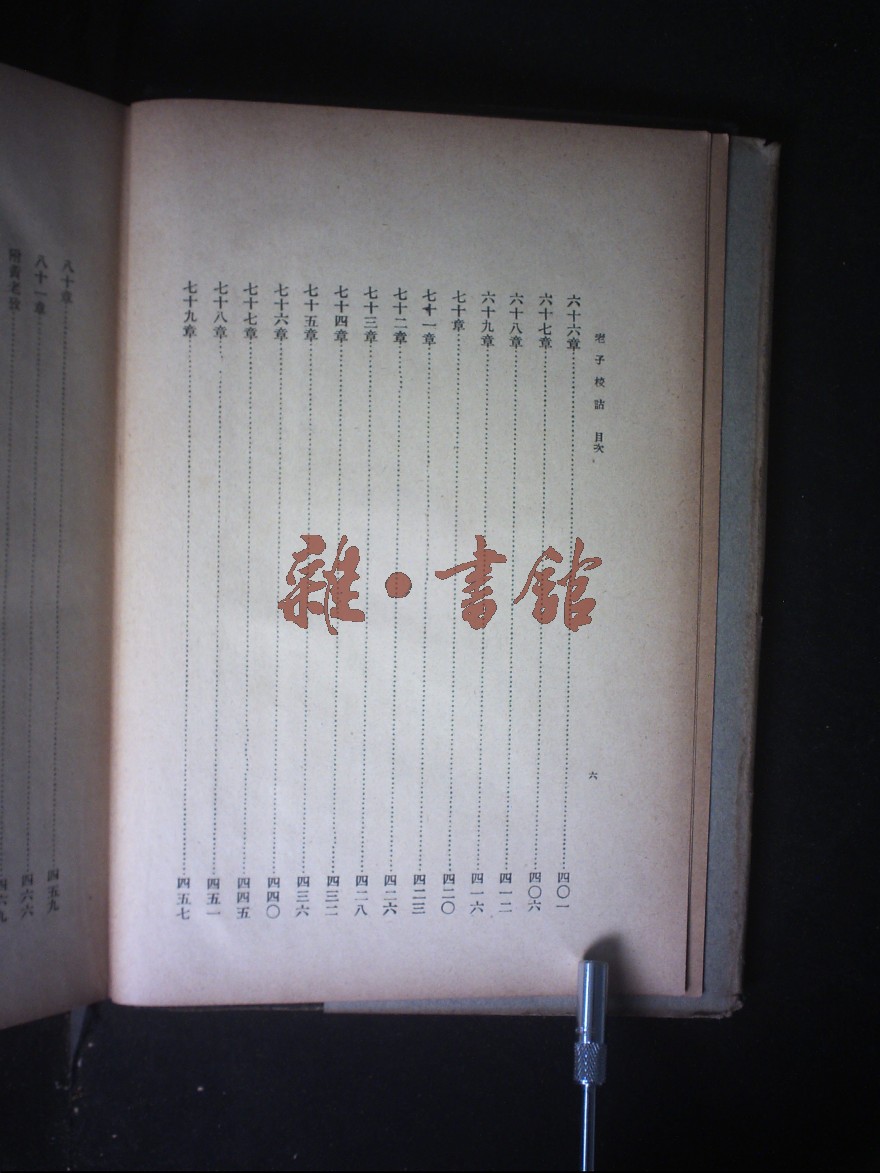 老子校詁 目次
六
六十六章 四〇一
六十七章 四〇六
六十八章 四一二
六十九章 四一六
七十章 四二〇
七十一章 四二三
七十二章 四二六
七十三章 四二八
七十四章 四三二
七十五章 四三六
七十六章 四四〇
七十七章 四四五
七十八章 四五一
七十九章 四五七
八十章 四五九
八十一章 四六六
附黃老攷 四六九
雜•書館